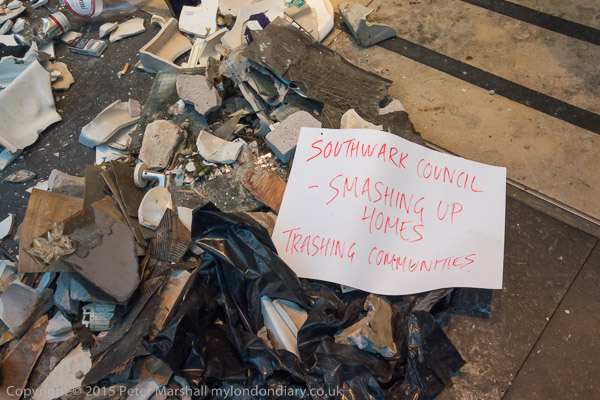 SOUTHWARK COUNCIL
- SMASHING UP
HOMES
TRASHING COMMUNITIES.
Copyright © 2015 Peter Marshall mylondondiary.co.uk